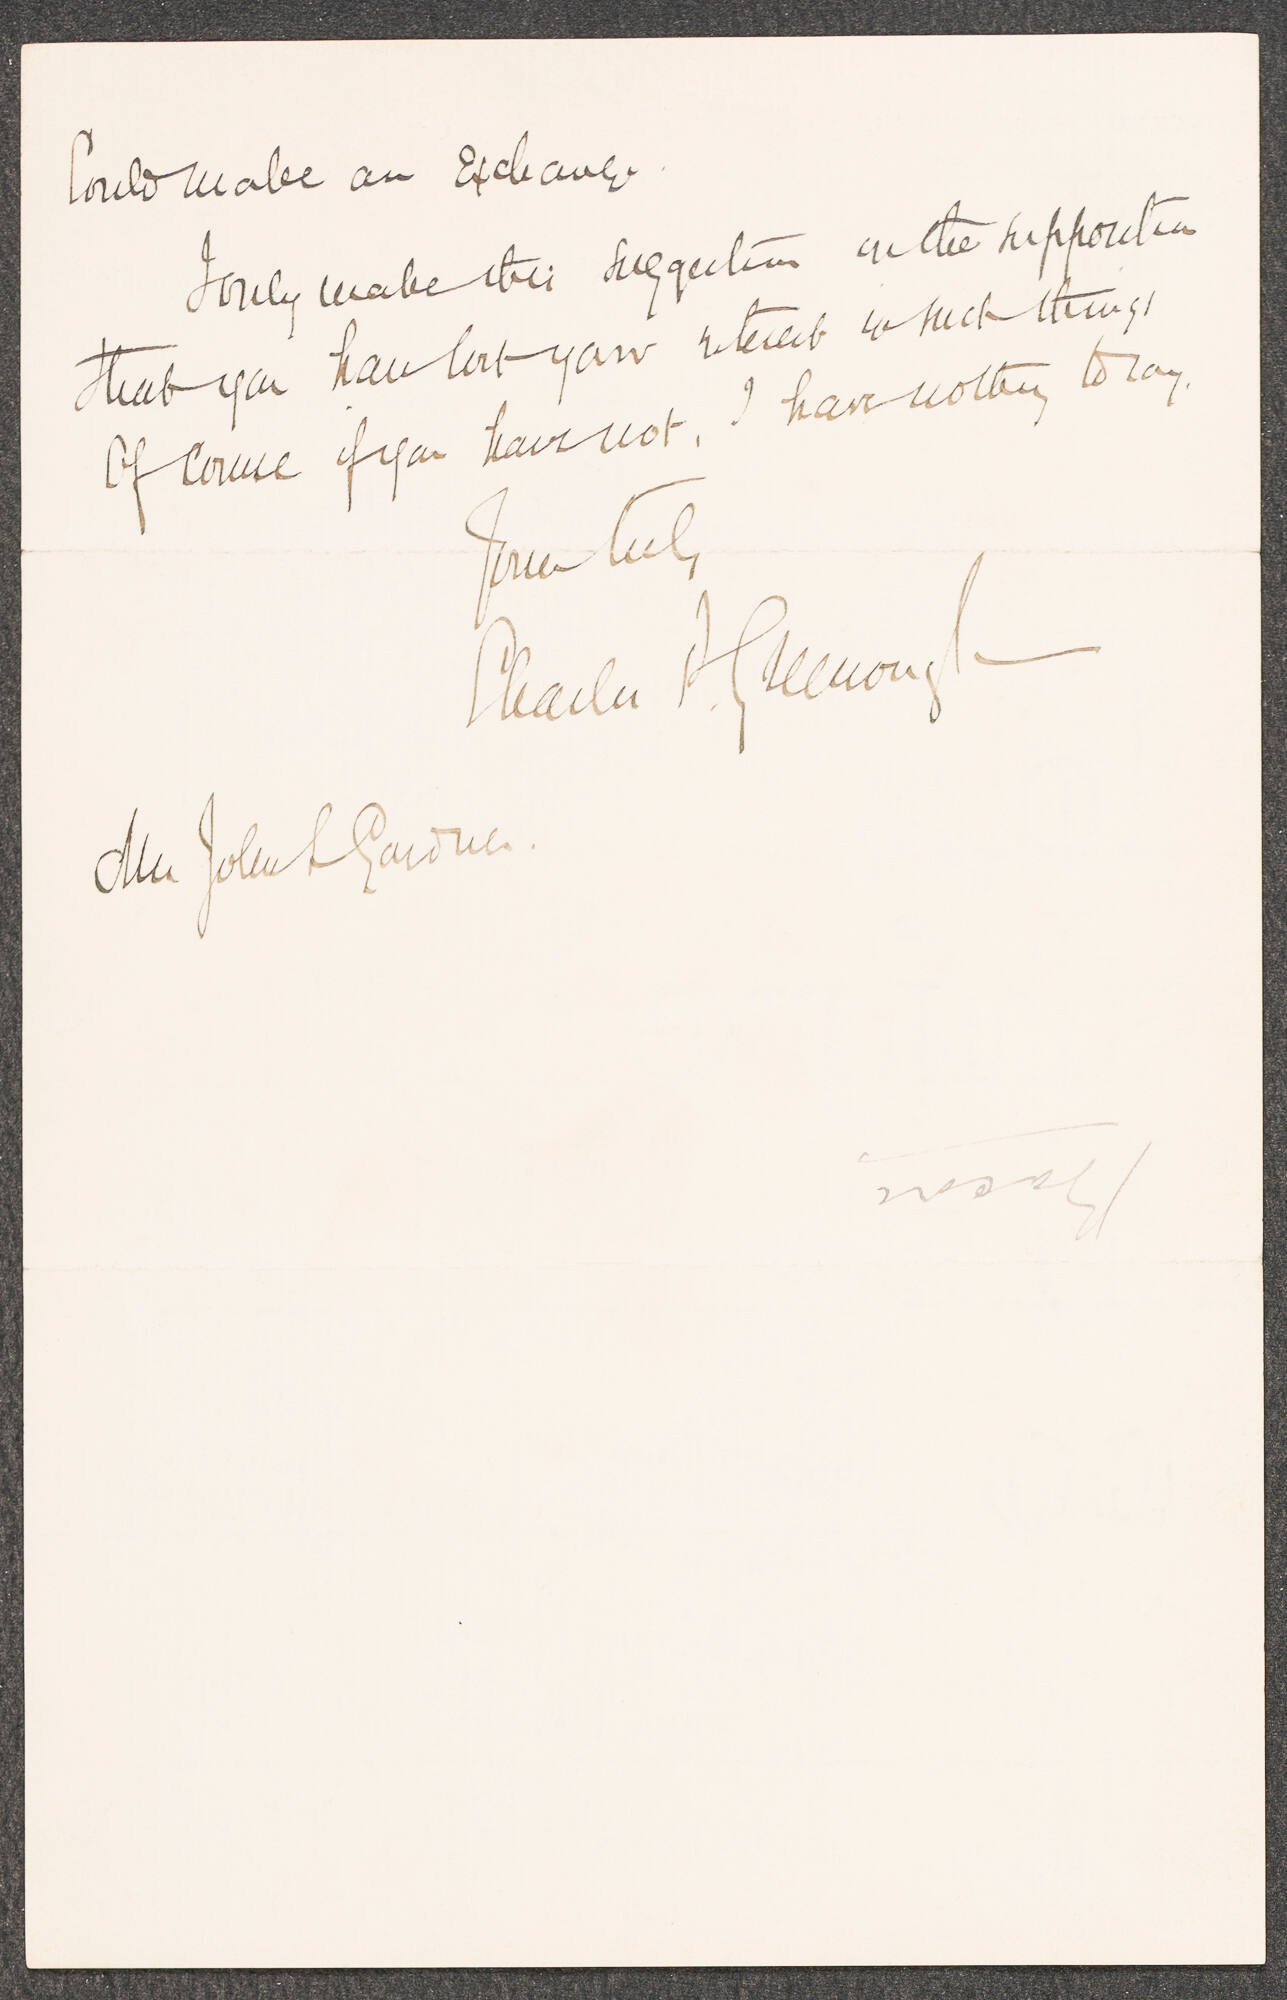 Could make an Exchange.
I only make this suggestion on the supposition
that you have lost your interest in such things
Of course if you have not, I have nothing to say.
Yours truly
Charles P. Greenough
Mrs John L Gardner.